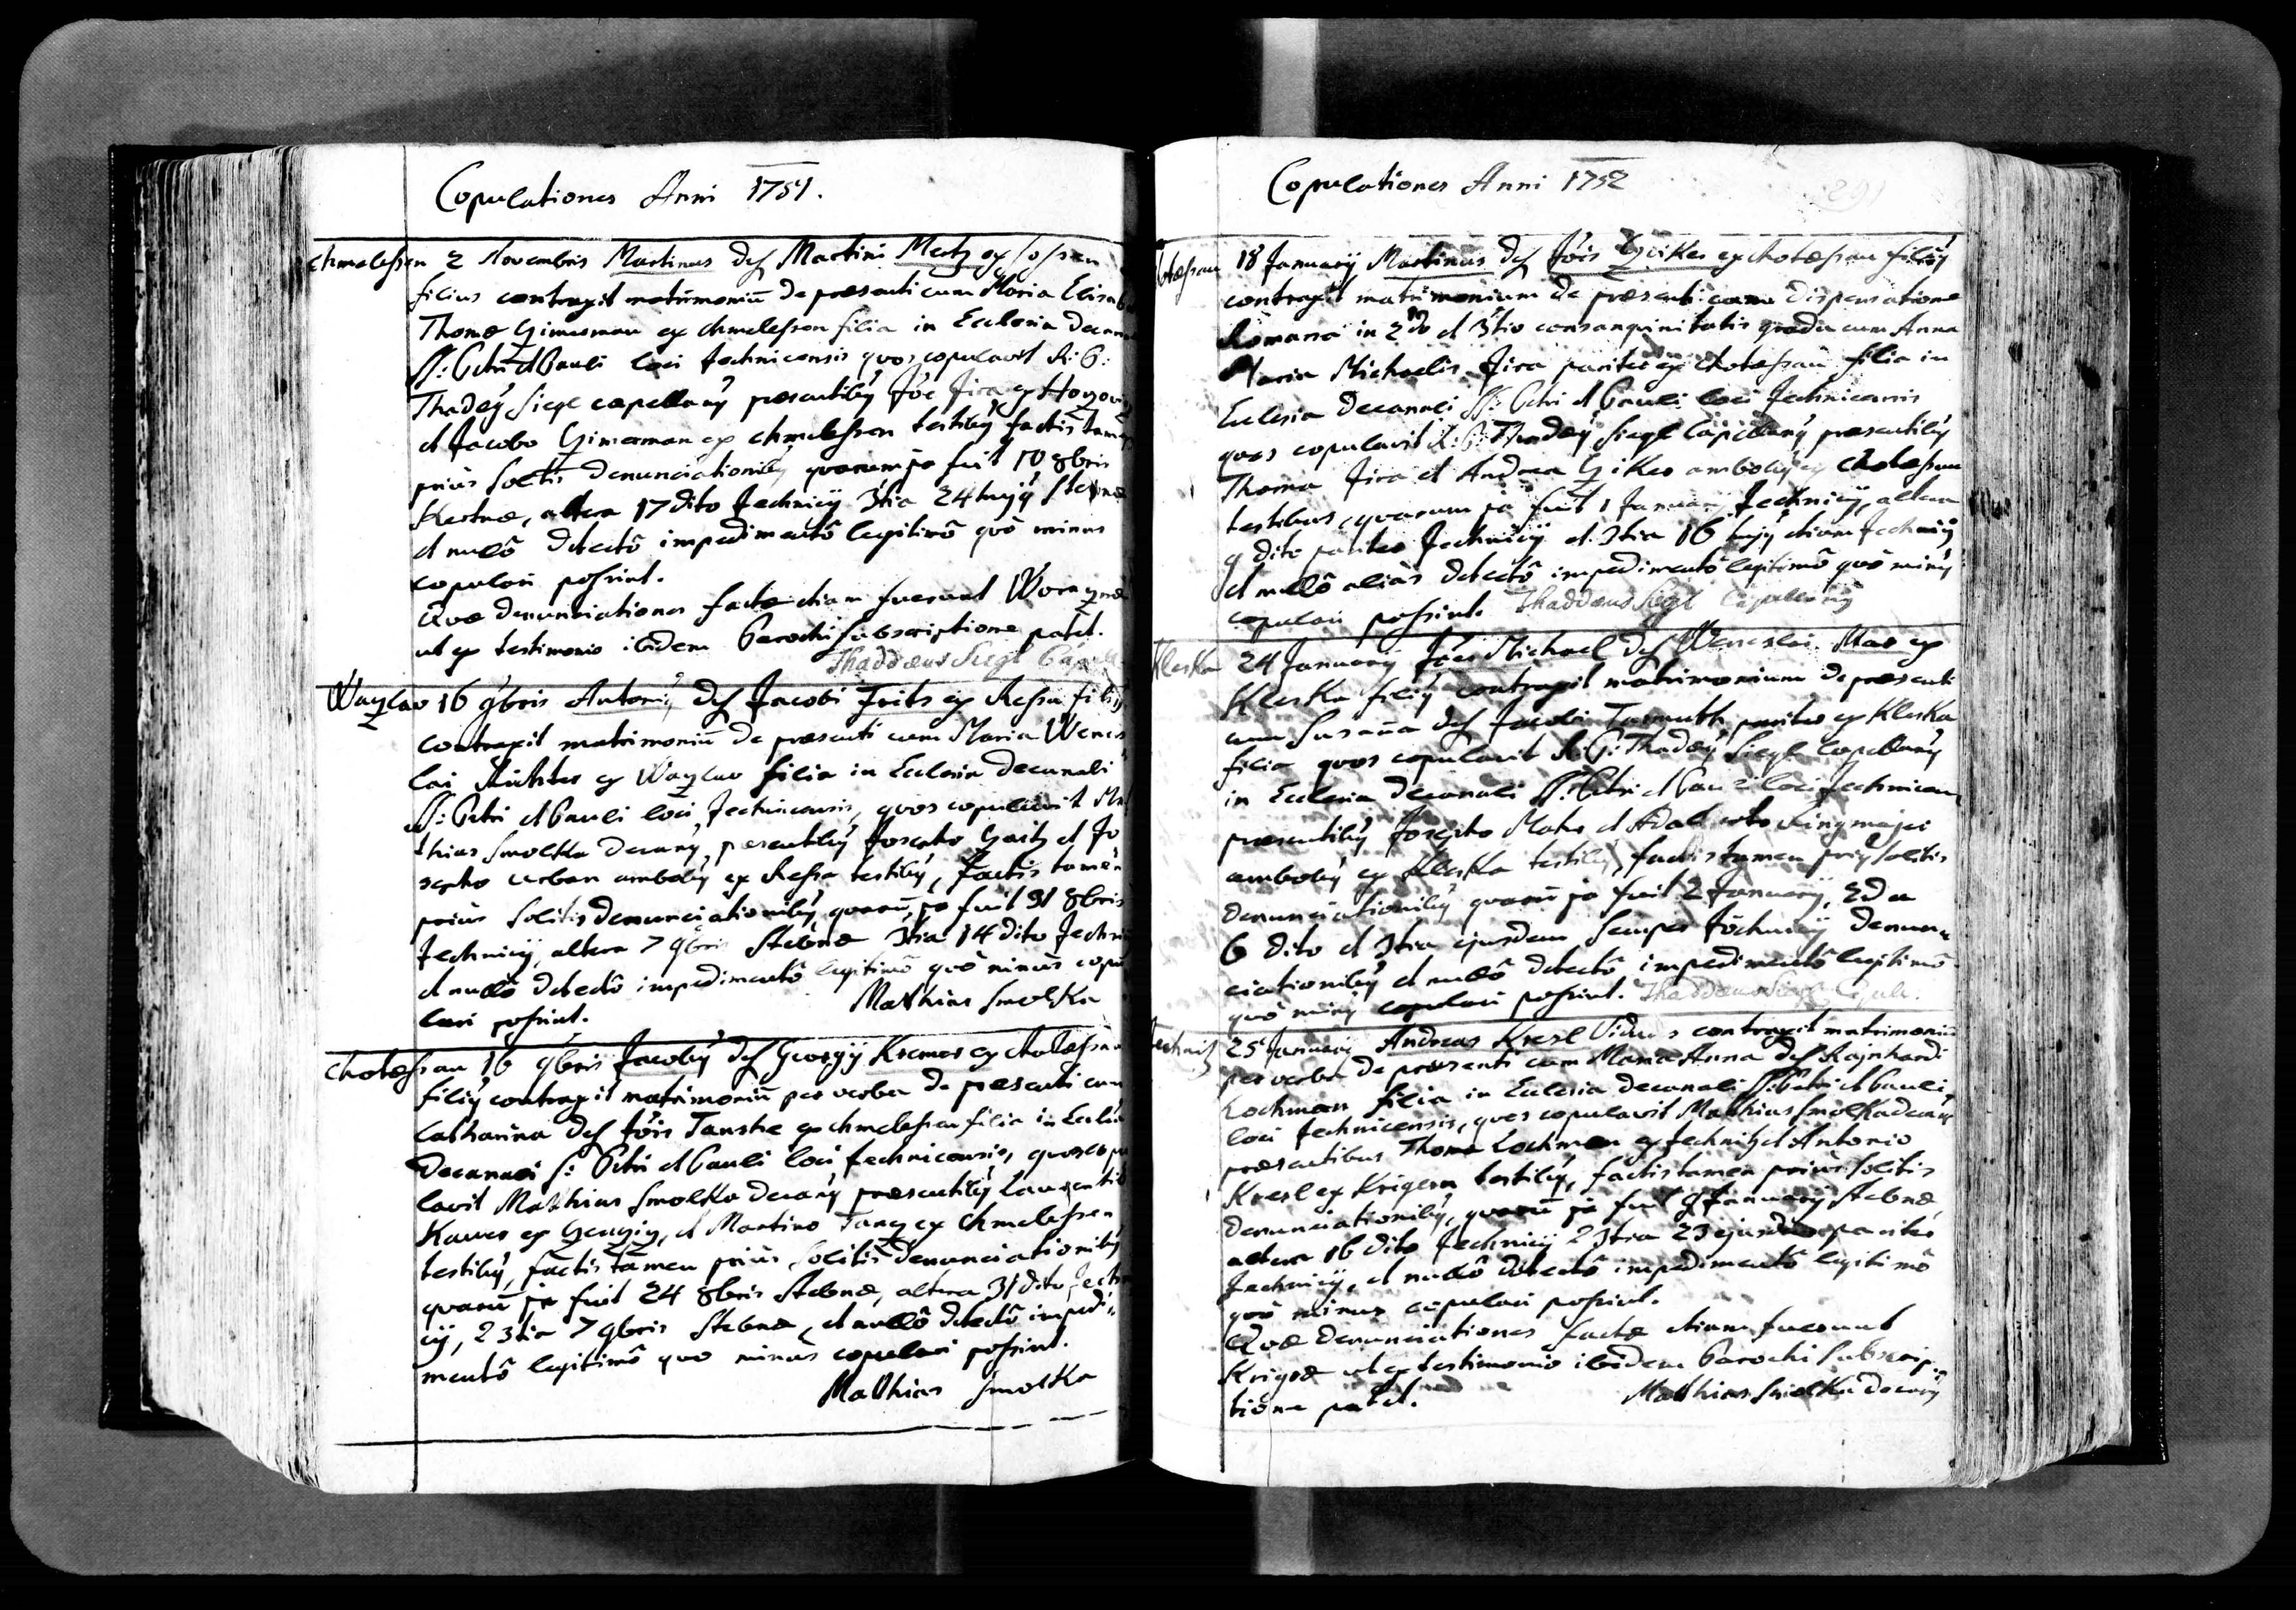 Copulationes Anni 1751.
Chmeleschen 2 Novembris Martinus deſ Martini Mertz ex
filius contraxit matrimoniū de præsenti cum Maria Elisab
Thomæ Gimerman ex chmeleschen filia in Ecclesia Decan
SS: Petri et Pauli loci Jechnicensis quos copulavit R: P:
Thadeÿ Siegl capellanÿ præsentibÿ Jōe Jira ex
et Jacobo Gimerman ex chmeleschen testibÿ factis tamen
prius solitis denunciationibÿ quarum 1a fuit 10 8bris
altera 17 dito Jechnicÿ 3tia 24 hujÿ Stebnæ
et nullô detectô impedimentô legitimô quô minus
copulari possint.
Quæ denunciationes factæ etiam fuerunt
ut ex testimonio ibidem Parochi subscriptione patet.
Thaddæus Siegl
Wayzlav 16 9bris Antoniÿ deſ Jacobi Frits ex filiÿ
contraxit matrimoniū de præsenti cum Maria Wences
lai Richter ex Wayzlav filia in Ecclesia Decanali
SS: Petri et Pauli loci Jechnicensis, quos copulavit Mat
thias Smolka Decanÿ, præsentibÿ Josepho Gaitz et Jo
sepho Urban ambobÿ ex testibÿ, factis tamen
prius solitis denunciationibÿ quarū 1a fuit 31 8bris
Jechnicÿ, altera 7 9bris Stebnæ 3tia 14 dito Jechni
et nullô detectô impedimentô legitimô quô minus copu
lari possint. Mathias Smolka
Chotæschau 16 9bris Jacobÿ deſ Georgÿ Kremer ex chotæschau
filiÿ contraxit matrimoniū per verba de præsenti cum
Catharina deſ Jōis Taushe ex chmeleschen filia in Ecclia
Decanali S: Petri et Pauli loci Jechnicensis, quos copu
lavit Mathias Smolka Decanÿ præsentibÿ Laurentio
Kawer ex et Martino ex chmeleschen
testibÿ, factis tamen prius solitis denunciationibÿ
quarū 1a fuit 24 8bris Stebnæ, altera 31 dito Jechni
cÿ, 2 3tia 7 9bris Stebnæ, et nullô detectô impedi
mentô legitimô quo minus copulari possint.
Mathias Smolka
Copulationes Anni 1752
18 Januarÿ Martinus deſ Jōis ex chotæschau filiÿ
contraxit matrimonium de præsenti cum dispensatione
Romana in 2do et 3tio consanquinitatis gradu cum Anna
Maria Michaelis Jira pariter ex chotæschau filia in
Eclesia Decanali SS: Petri et Pauli loci Jechnicensis
quos copulavit R: P: Thadeÿ Siegl Capellanÿ præsentibÿ
Thoma Jira et Andrea ambobÿ ex chotæschau
testibus, quarum 1a fuit 1 Januarÿ Jechnicÿ, altera
9 dito pariter Jechnicÿ et 3tia 16 hujÿ etiam Jechnicÿ
et nullô aliàs detectô impedimentô legitimô quô minÿ
copulari possint. Thaddæus Siegl Capellanÿ
Kleska 24 Januarÿ Jōes Michael deſ Wenceslai ex
Kleska filiÿ contraxit matrimonium de præsenti
cum Susaña deſ Jacobi pariter ex Kleska
filia quos copulavit R: P: Thadeÿ Siegl Capellanÿ
in Ecclesia Decanali SS: Petri et Pauli loci Jechnicen
præsentibÿ Josepho et Adalberto
ambobÿ ex Kleska testibÿ, factis tamen priÿ solitis
denunciationibÿ quarū 1a fuit 2 Januarÿ, 2da
6 dito et 3tia ejusdem semper Jechnicÿ denun
ciationibÿ et nullô detectô impedimentô legitimô
quô minÿ copulari possint. Thaddæus Siegl Capell.
25 Januarÿ Andreas Kresl Viduus contraxit matrimoniū
per verba de præsenti cum Maria Anna deſ Rajnhardi
Lochman filia in Eclesia Decanali SS: Petri et Pauli
loci Jechnicensis, quos copulavit Mathias Smolka decanÿ
præsentibus Thoma Lochman ex Jechnitz et Antonio
Kresl ex Krigern testibÿ, factis tamen prius solitis
denunciationibÿ, quarū 1a fuit 9 Januarÿ Stebnæ,
altera 16 dito Jechnicÿ 2 3tia 23 ejusdem pariter
Jechnicÿ, et nullô detectô impedimentô legitimô
quô minus copulari possint.
Quæ denunciationes factæ etiam fuerunt
Krigæ ut ex testimonio ibidem Parochi subscrip
tione patet. Mathias Smolka decanÿ